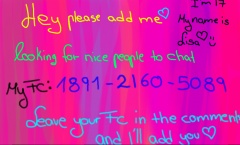 Hey please add me♡
I'm 17
My name is
Lisa♡
Looking for nice people to chat
My FC: 1891-2160-5089
Leave your FC in the comments
and I'll add you♡